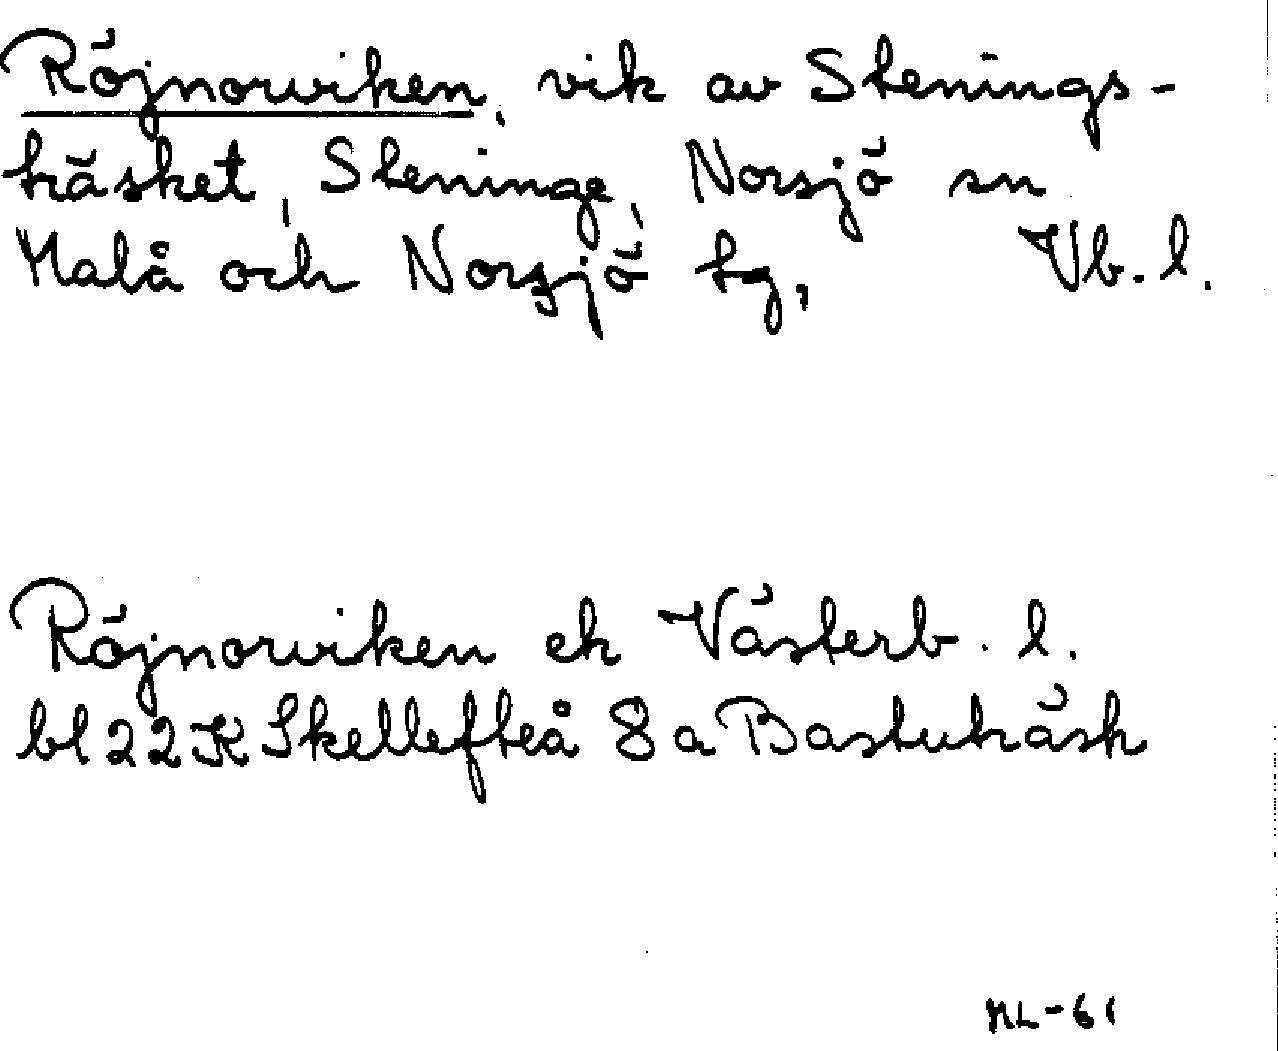 Röjnorviken, vik av Stenings-
träsket, Steninge, Norsjö sn
Malå och Norsjö tg, Vb. l.
Röjnorviken ek Västerb. l.
bl 22 K Skellefteå 8 a Bastuträsk
ML-61